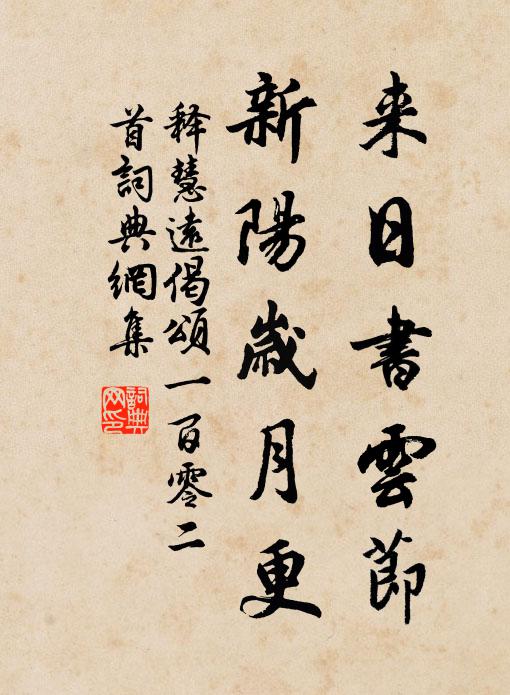 来日書雲節
新陽歲月更
释慧遠偈頌一百零二
首詞典網集
詞典网印